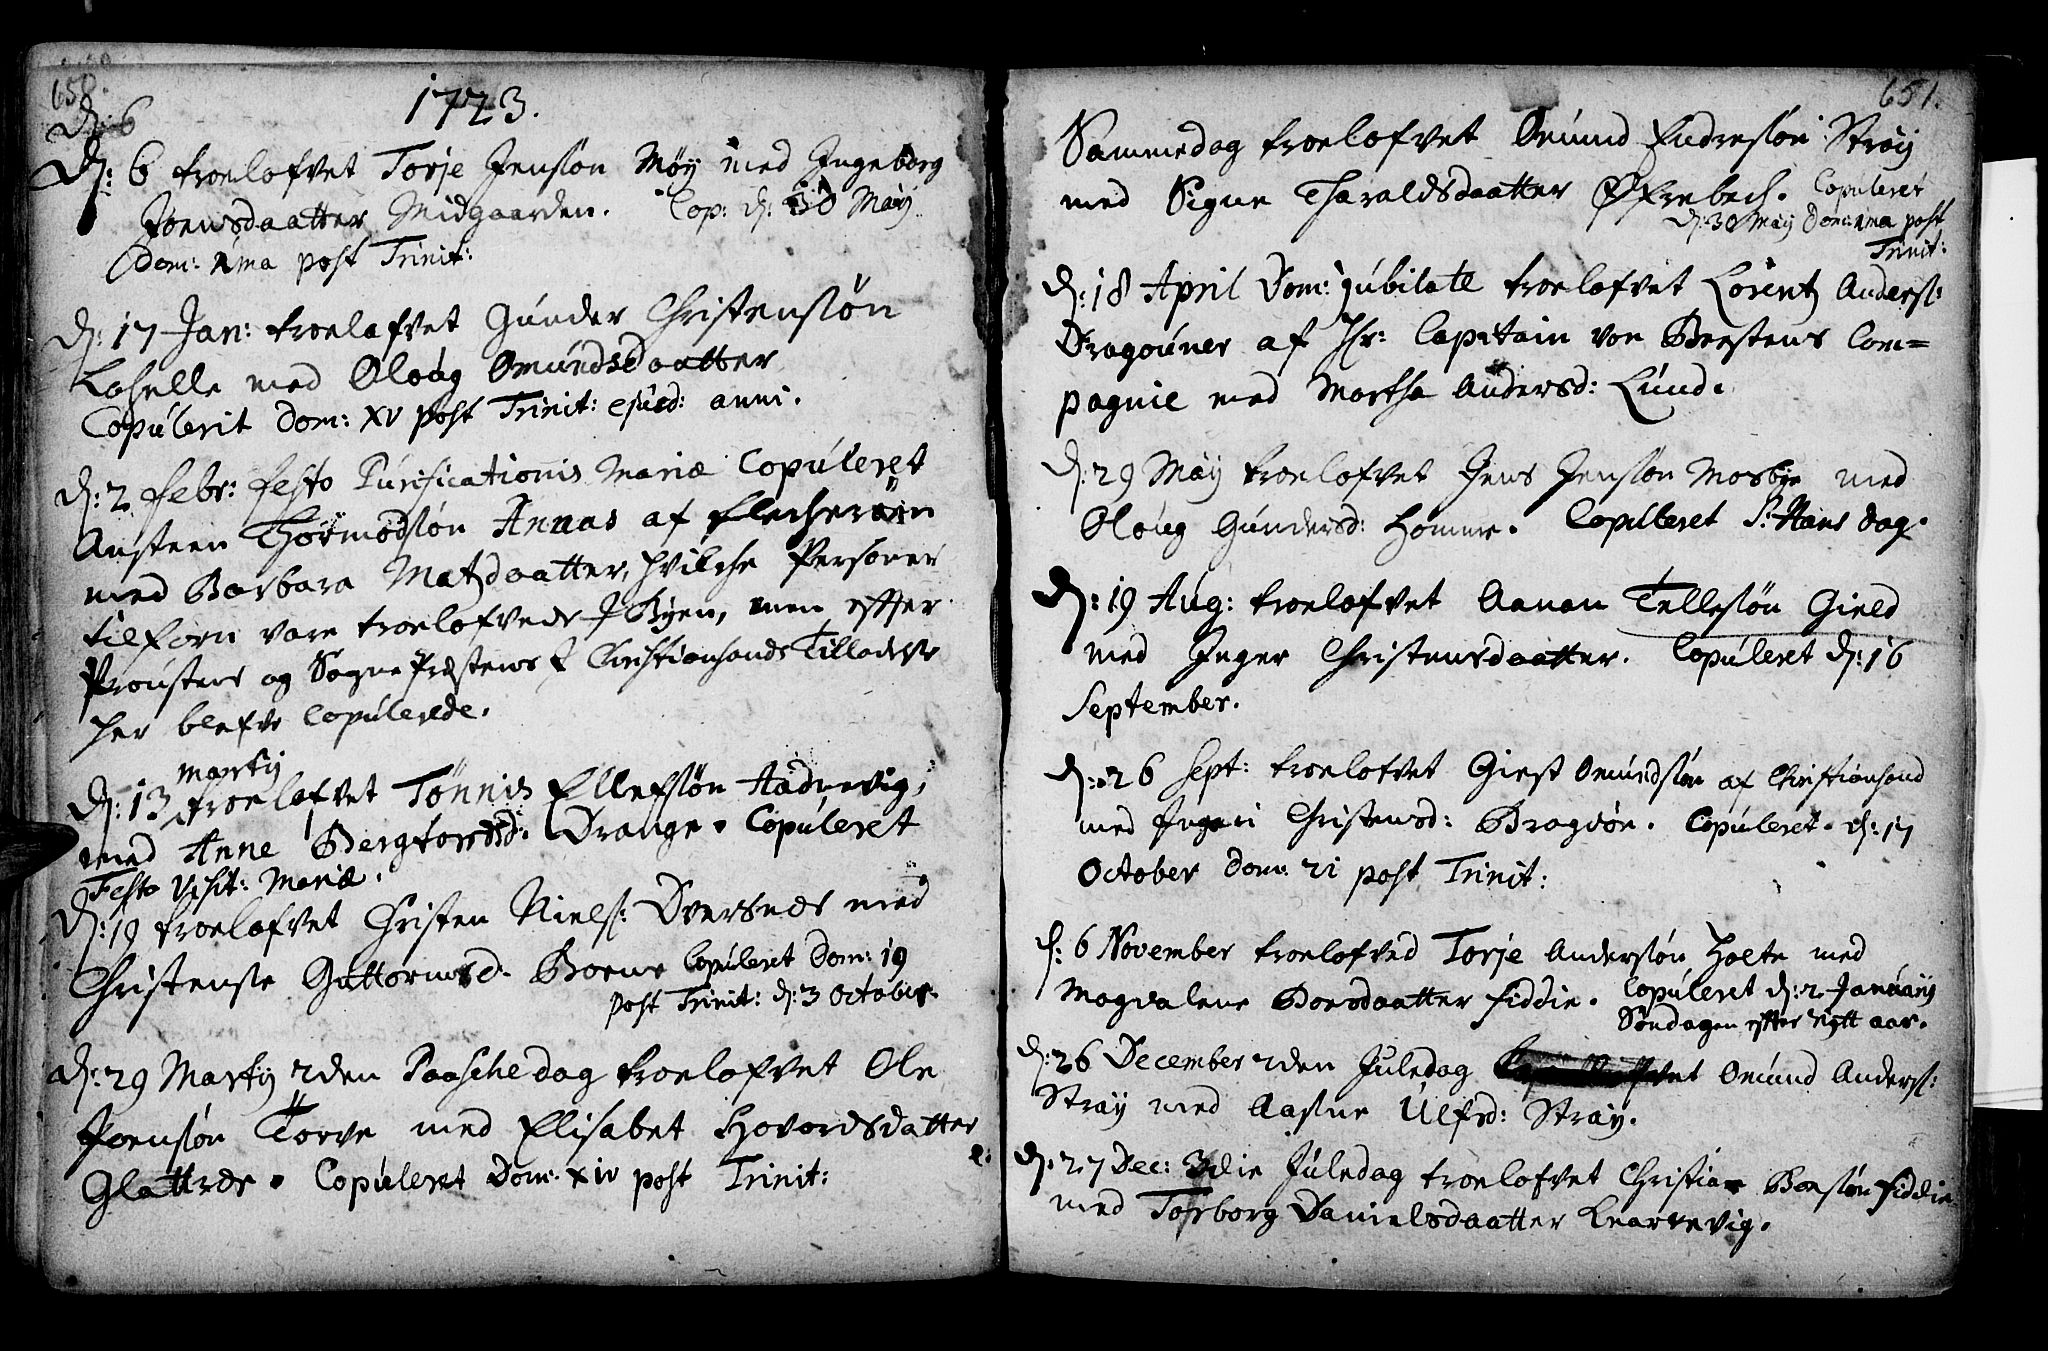 650.
1723.
D: 6
D: 6 troelofvet Torje Jensson Møÿ med Ingeborg
Joensdaatter Midgaarden. Cop: d: 30 Maÿ
Dom: 1ma post Trinit:
D: 17 Jan: troelofvet Gunder Christensøn
Lohelle med Oloug Omundsdaatter
Copulerit Dom: XV post Trinit: ejusd: anni.
D: 2 Febr: Festo Purificationis Mariæ Copuleret
Austeen Thormodsøn Annas af Flecherøen
med Barbara Matzdaatter, hvilche Personer
tilforn vare troelofvede J Byen, men effter
Proustens og Sognepræstens J Christiansands Tilladelse
her blefve Copulerede.
D: 13 Martij troelofvet Tønnis Ellefsøn Aadnevig,
med Anne Bergtorsd: Drange. Copuleret
Festo Visit: Mariæ.
D: 19 troelofvet Christen Niels: Dversnes med
Christense Guttormsd: Boene Copuleret Dom: 19
post Trinit: d: 3 October.
D: 29 Martij 2den Paaschedag troelofvet Ole
Joensøn Torve med Elisabet Hovordsdatter
Glattrer. Copuleret Dom: XIV post Trinit:
651.
Sammedag troelofvet Omund Endresøn Straÿ
med Signe Tharaldsdaatter Øfrebech. Copuleret
d: 30 Maÿ Dom: 1ma post
Trinit:
D: 18 April Dom: Jubilate troelofvet Lorentz Anders:
Dragouner af Hr: Capitain von Brestens Com=
pagnie med Martha Andersd: Lund.
D: 29 Maÿ troelofvet Jens Jensøn Mosbye med
Oloug Gundersd: Homme. Copuleret S: Hans dag.
D: 19 Aug: troelofvet Aanon Tellesøn Gield
med Inger Christensdaatter. Copuleret d: 16
September.
D: 26 Sept: troelofvet Giest Omundsøn af Christiansand
med Ingeri Christensd: Bragdøe. Copuleret. d: 17
October Dom: 21 post Trinit:
D: 6 November troelofved Torje Andersøn Holte med
Magdalene Boesdaatter Fiddie. Copuleret d: 2 Januarij
Søndagen effter nytt aar.
D: 26 December 2den Juledag Omund Anders:
Straÿ med Aasne Ulfsd: Straÿ.
D: 27 Dec: 3die Juledag troelofvet Christian Boesøn Fiddie
med Torborg Danielsdaatter Kearrevig.